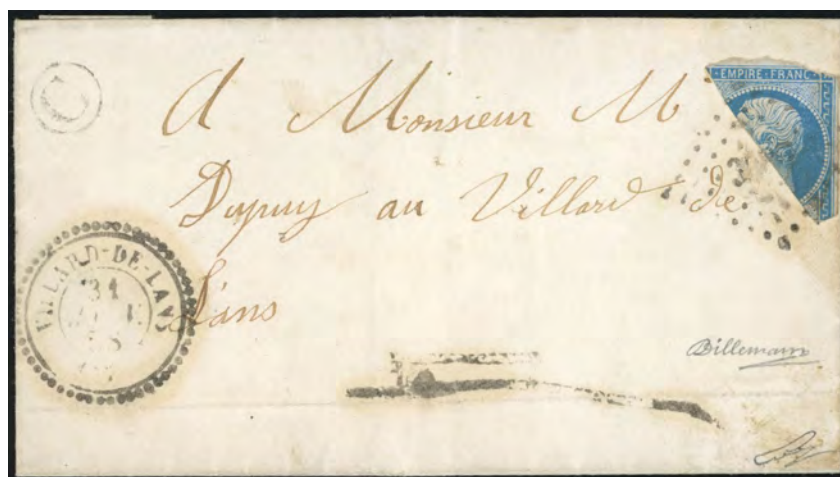 C
EMPIRE FRANC
A Monsieur M
Dupuy au Villard de
Lans
VILLARD-DE-LANS
31
Billemann